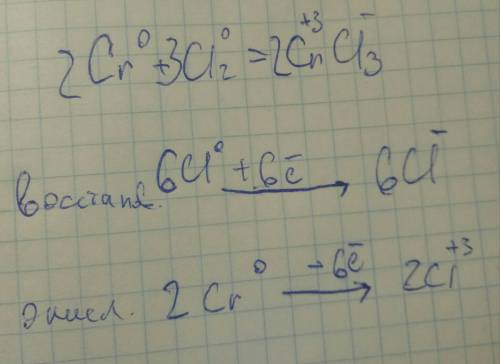 2Cr⁰ + 3Cl₂⁰ = 2Cr⁺³Cl₃⁻
восстан. 6Cl⁰ + 6ē → 6Cl⁻
окисл. 2Cr⁰ −6ē → 2Cr⁺³